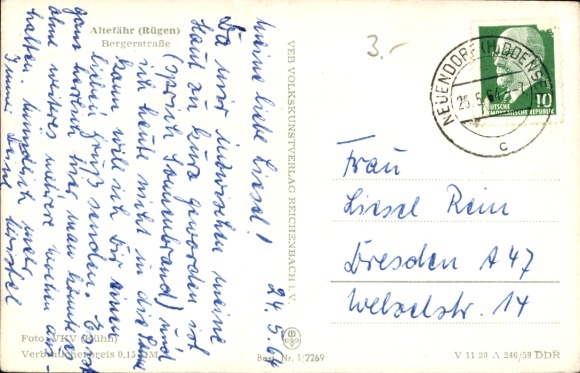 Altefähr (Rügen)
Bergerstraße
24.5.64
Meine liebe Liesel!
Da mir inzwischen meine
Haut zu kurz geworden ist
(sprich Sonnenbrand) und
ich heute nicht in die Sonne
kann, will ich Dir einen
lieben Gruß senden. Es ist
ganz herrlich hier, man könnte
ohne weiteres mehrere Wochen aus-
halten. Mündlich mehr.
Immer Deine
Foto: VKV (Kühn)
Verbraucherpreis 0,15 DM
VEB VOLKSKUNSTVERLAG REICHENBACH i. V.
Best. Nr. 1/2269
3.-
NEUENDORF (HIDDENSEE)
25.5.64
c
10
DEUTSCHE
DEMOKRATISCHE REPUBLIK
Frau
Liesel Rein
Dresden A 47
Welzelstr. 14
V 11 28 A 246/59 DDR